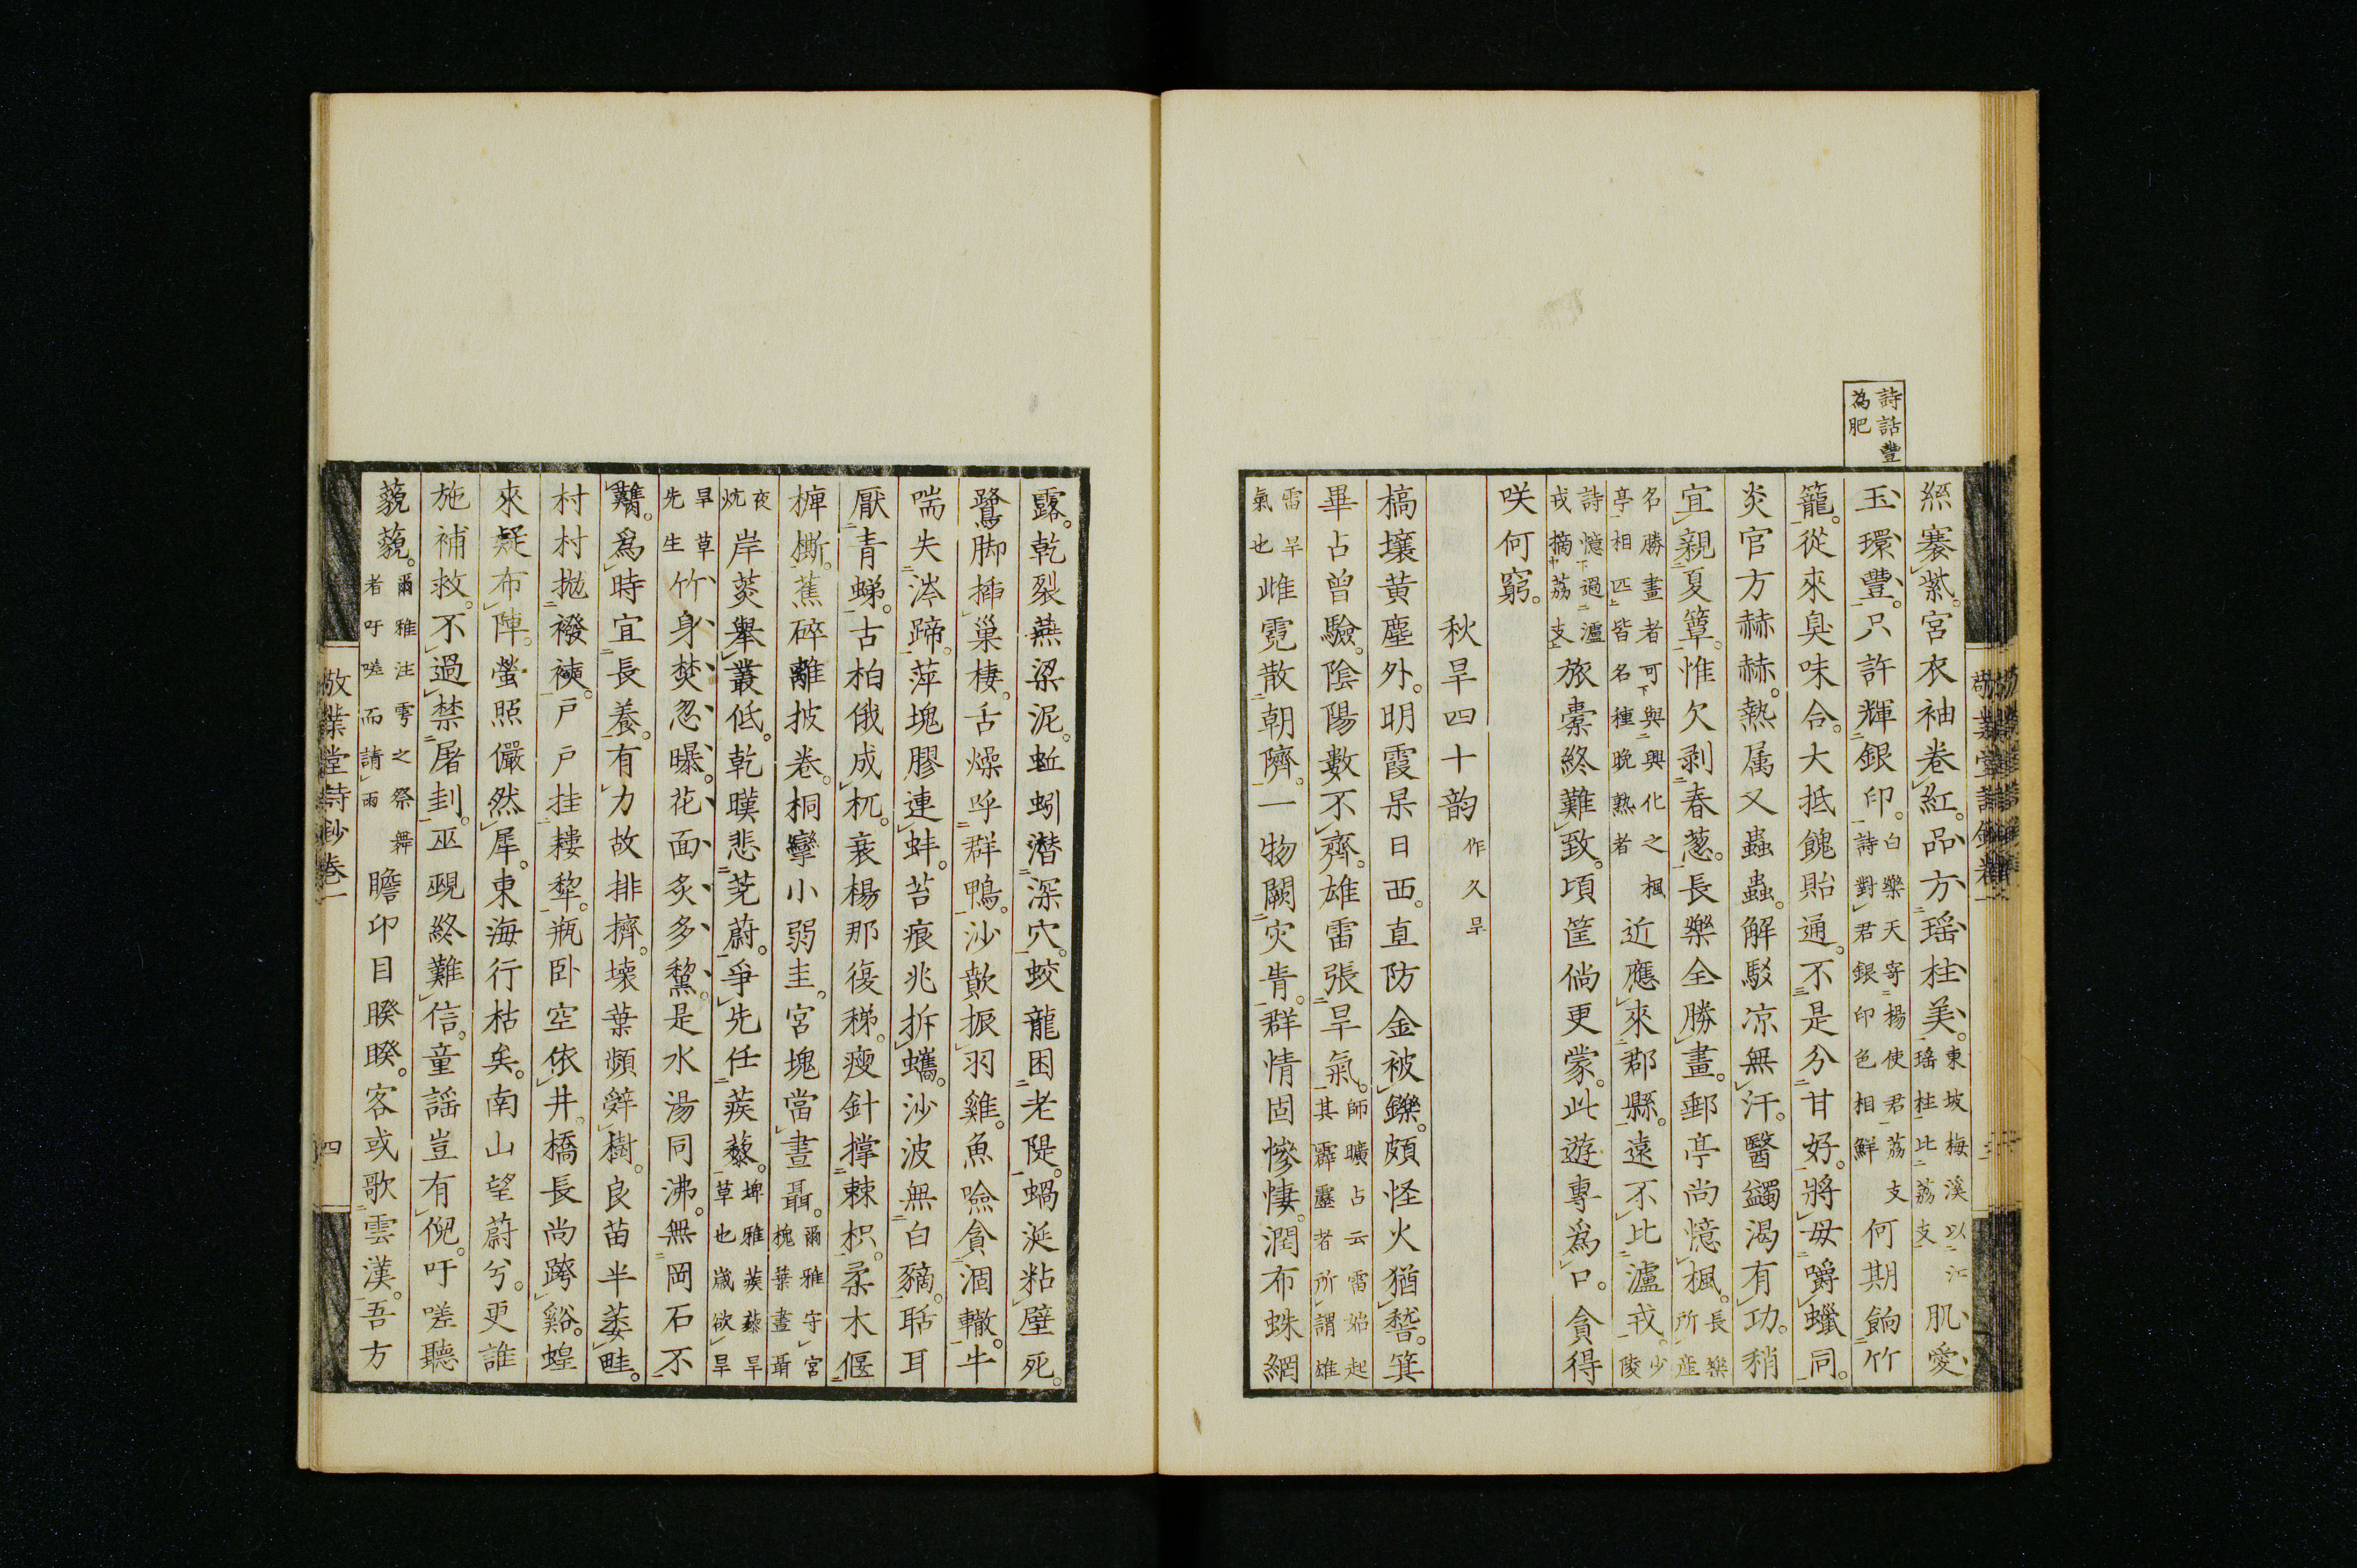 詩話豐
為肥
絲褰紫宮衣袖卷紅品方瑶柱美東坡梅溪以江瑶柱比荔支肌愛
玉環豐只許輝銀印白樂天寄楊使君荔支詩對君銀印色相鮮何期餉竹
籠從來臭味合大抵餽貽通不是分甘好將毋嚼蠟同
炎官方赫赫熱属又蟲蟲解駁凉無汗醫蠲渴有功稍
宜親夏簟惟欠剥春葱長樂全勝畫郵亭尚憶楓長樂所産
名勝畫者可與興化之楓亭相匹皆名種晚熟者近應來郡縣遠不比瀘戎少陵
詩憶過瀘戎摘荔支旅橐終難致頃筐倘更蒙此遊專爲口貪得
咲何窮
秋旱四十韵作久旱
槁壤黄塵外明霞杲日西直防金被鑠頗怪火猶嵇箕
畢占曾驗陰陽數不齊雄雷張旱氣師曠占云雷始起其霹靂者所謂雄
雷旱氣也雌霓散朝隮一物闕灾眚群情固慘悽潤布蛛網
敬業堂詩鈔卷一
露乾裂燕梁泥蚯蚓潛深穴蛟龍困老隄蝸涎粘壁死
鷺脚插巢棲舌燥呼群鴨沙歕振羽雞魚噞貪涸轍牛
喘失涔蹄萍塊膠連蚌苔痕兆拆蠵沙波無白豴聒耳
厭青蜩古柏俄成杌衰楊那復稊瘦針撐棘枳柔木偃
椑㯕蕉碎離披卷桐攣小弱圭宮塊當晝聶爾雅守宮槐葉晝聶
夜炕岸茭舉叢低乾暵悲茺蔚爭先任蒺藜埤雅蒺藜旱草也歲欲旱
旱草先生竹身焚忽曝花面炙多黧是水湯同沸無岡石不
䨲爲時宜長養有力故排擠壊葉頻辭樹良苗半萎畦
村村抛襏襫戸戸挂耬犂瓶卧空依井橋長尚跨谿蝗
來疑布陣螢照儼然犀東海行枯矣南山望蔚兮更誰
施補救不過禁屠刲巫覡終難信童謡豈有倪吁嗟聽
藐藐爾雅注雩之祭舞者吁嗟而請雨瞻卬目睽睽客或歌雲漢吾方
敬業堂詩鈔卷一
四